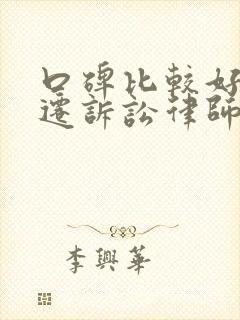 口碑比較好
遷訴訟律師
李興華